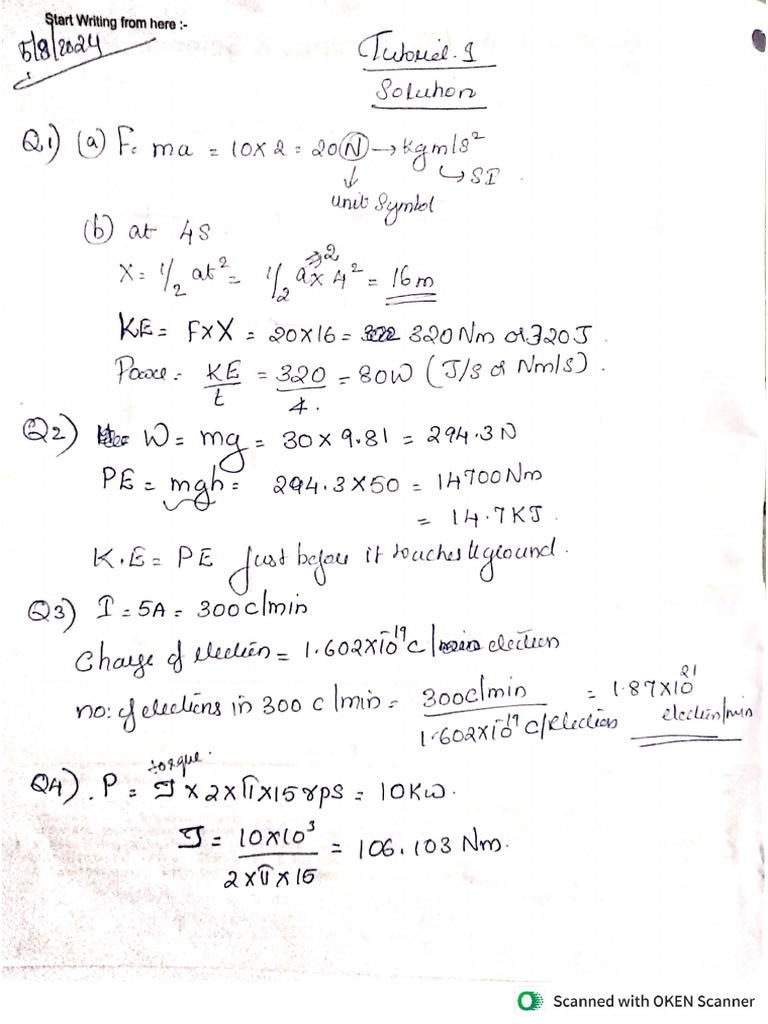 Start Writing from here :-
5/8/2024
Tutorial. 1
Solution
Q1) (a) F = ma = 10 x 2 = 20 N → kgm/s²
↓ ↳ SI
unit Symbol
(b) at 4s
X = 1/2 at² = 1/2 a x 4² = 16m
2
KE = F x X = 20 x 16 = 320 Nm or 320 J.
Power = KE/t = 320/4. = 80W (J/s or Nm/s).
Q2) W = mg = 30 x 9.81 = 294.3 N
PE = mgh = 294.3 x 50 = 14700 Nm
= 14.7 KJ.
K.E = PE Just before it touches ground.
Q3) I = 5A = 300 c/min
Charge of electron = 1.602 x 10⁻¹⁹ C/ electron
no: of electrons in 300 c/min = 300c/min / 1.602 x 10⁻¹⁹ C/electron = 1.87 x 10²¹ electron/min
torque.
Q4). P = T x 2 x π x 15 rps = 10 Kw.
T = 10 x 10³ / 2 x π x 15 = 106.103 Nm.
Scanned with OKEN Scanner